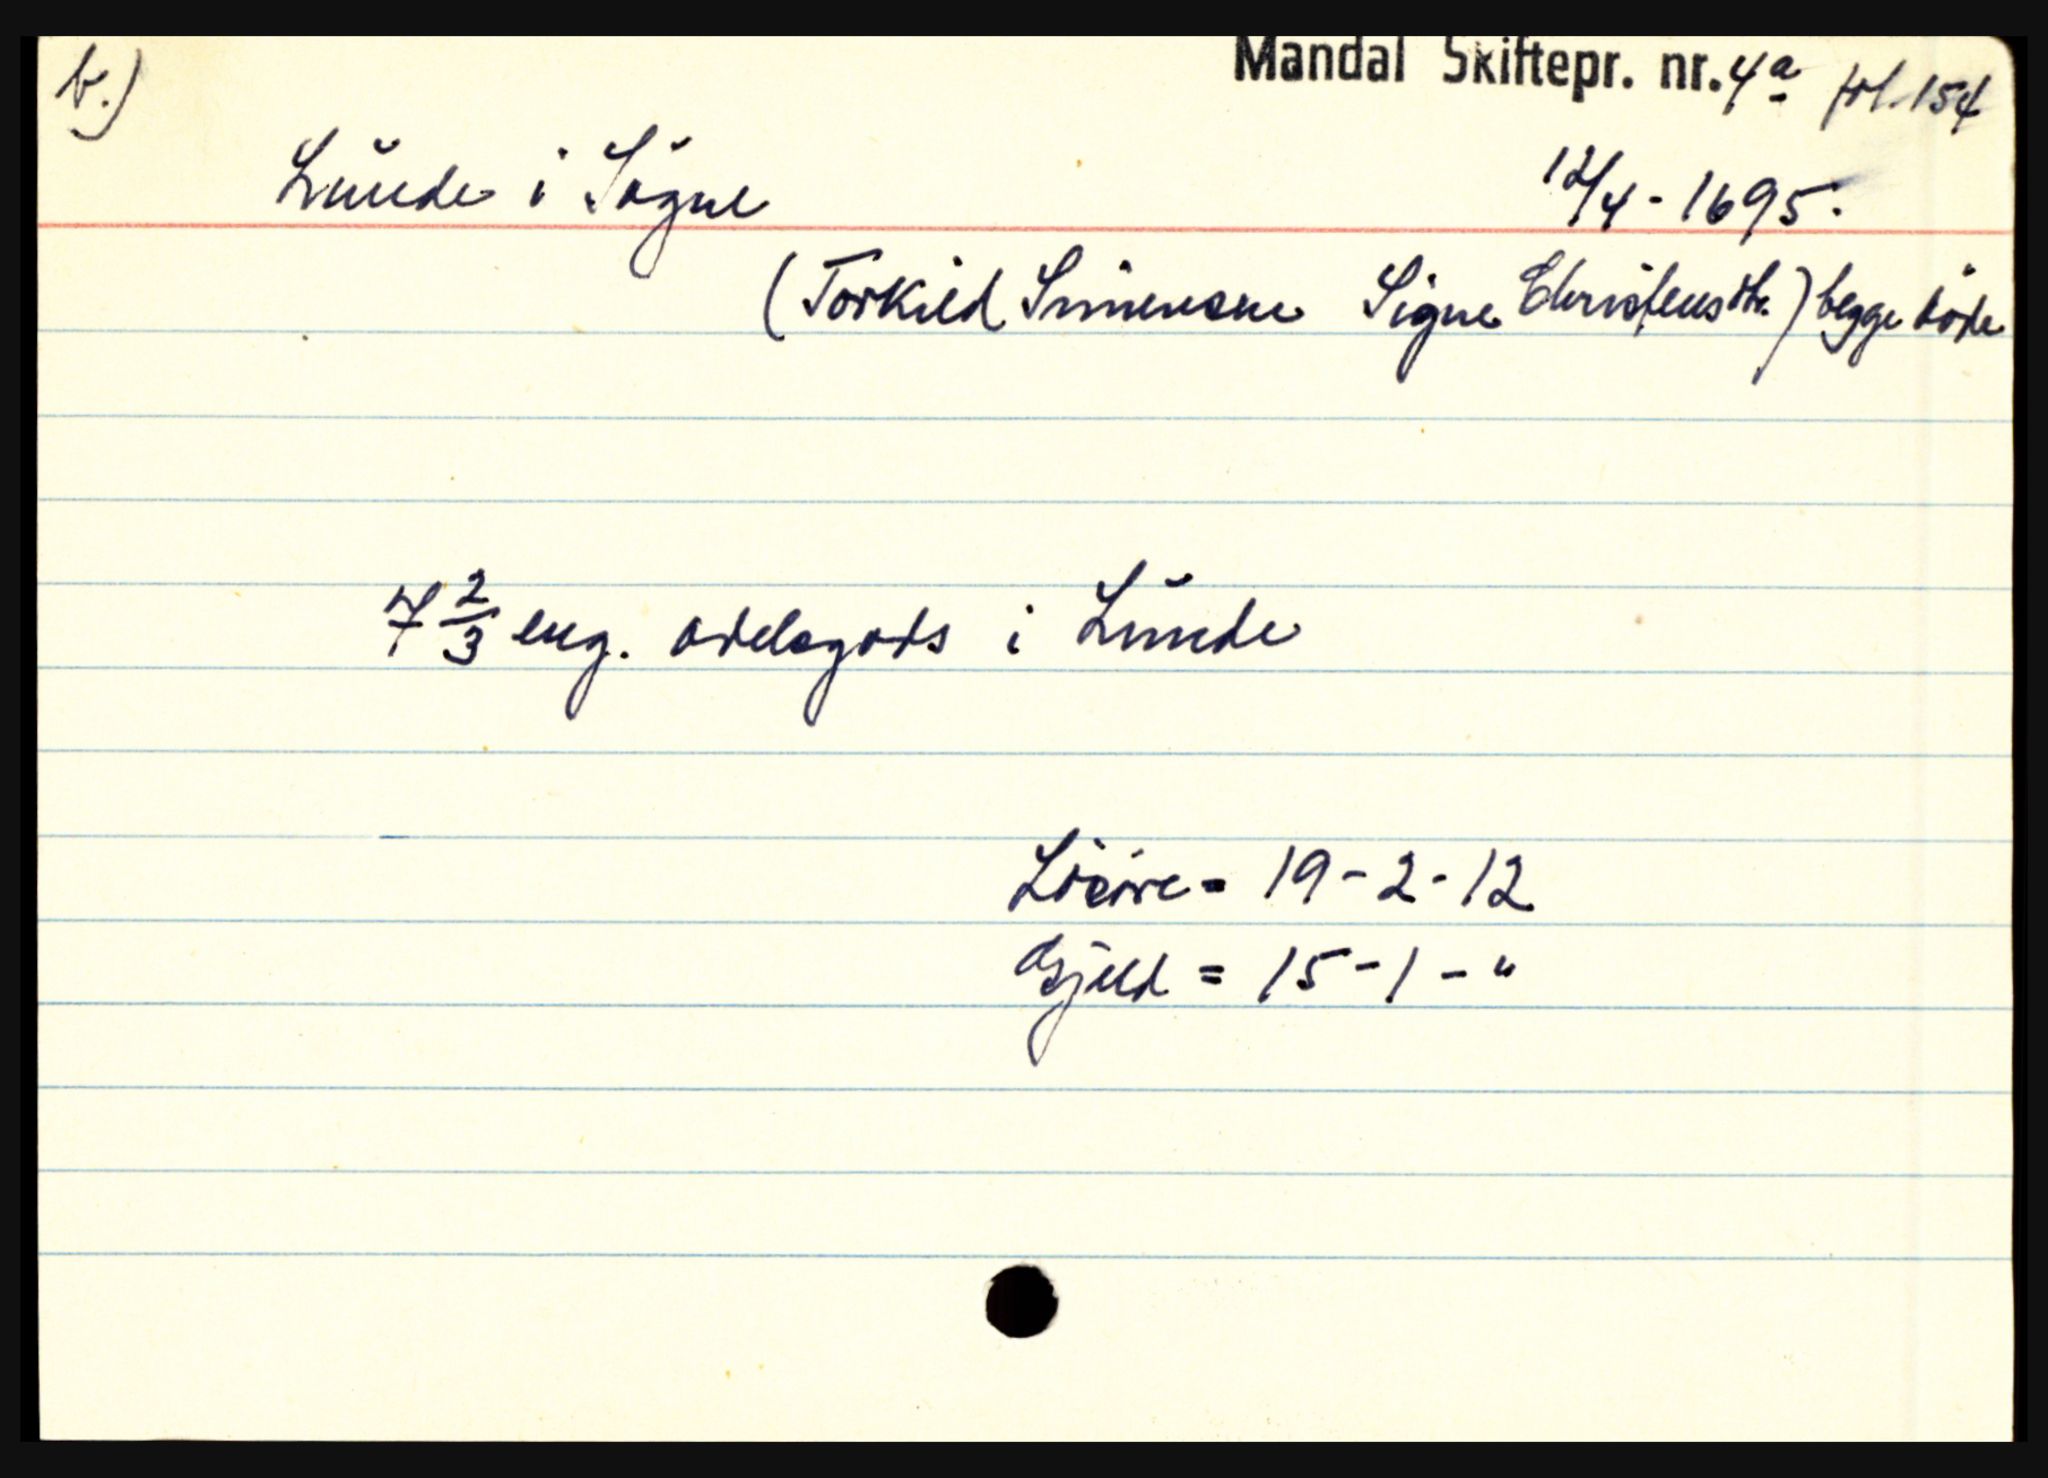 b.)
Mandal Skiftepr. nr. 4a fol. 154
Lunde i Sögne
12/4 - 1695.
(Torkild Simensen Signe Christensdtr.) begge döde
7 2/3 eng. odelsgods i Lunde
Lösöre = 19 - 2 - 12
Gjeld = 15 - 1 - "